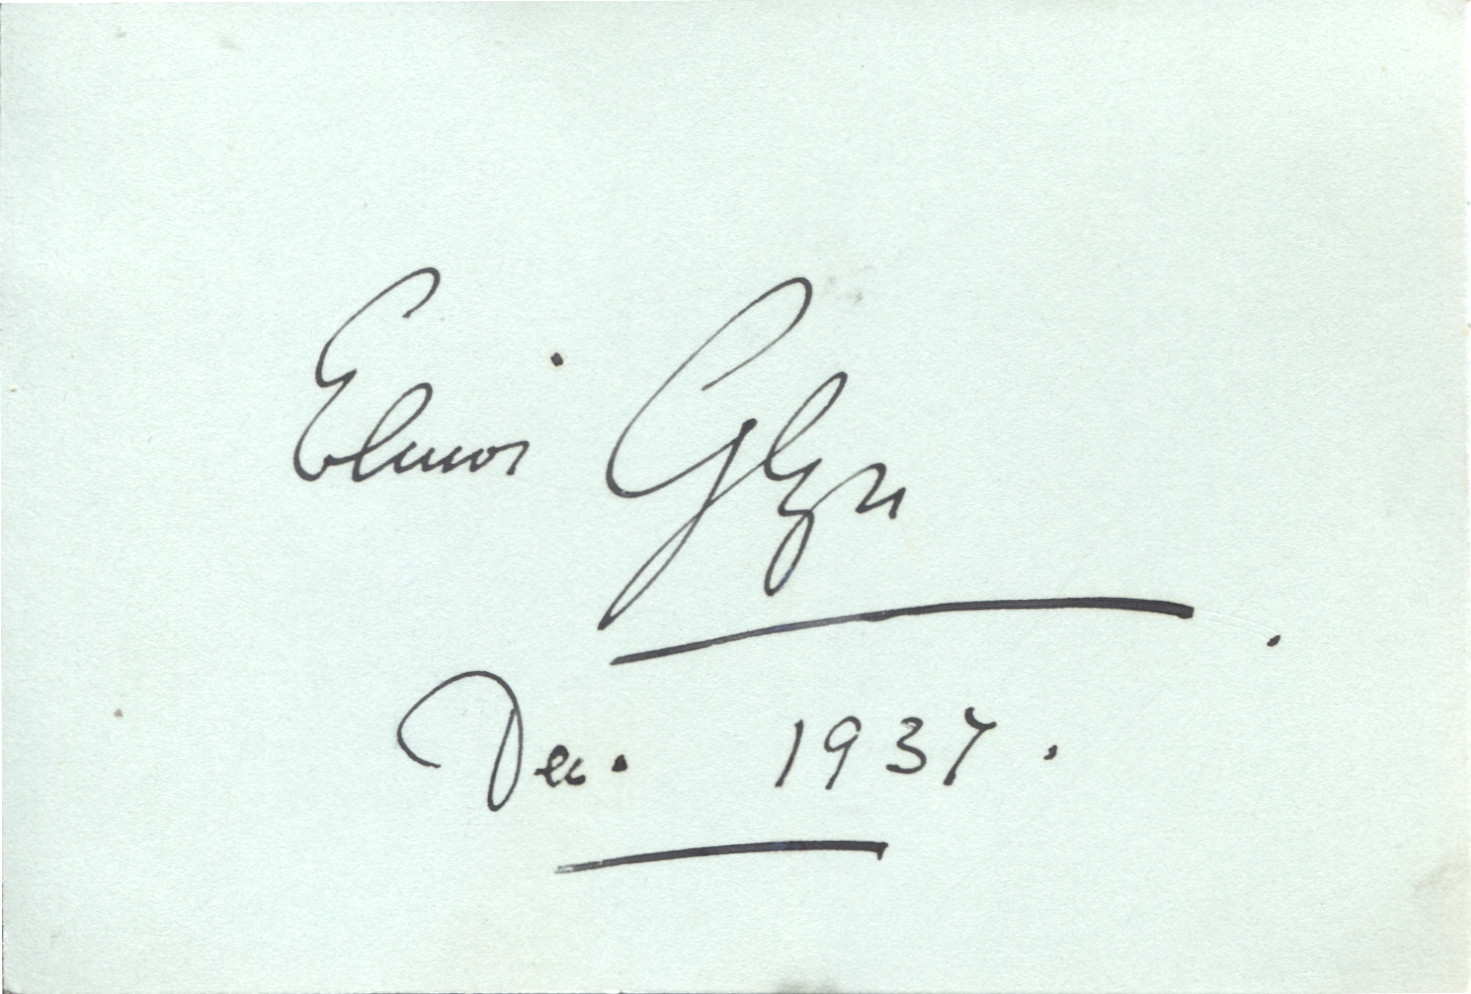 Elinor Glyn
Dec. 1937.